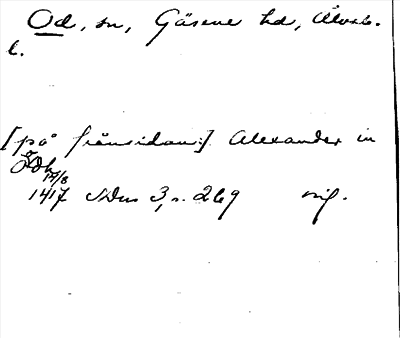 Od, sn, Gäsene hd, Älvsb.
l.
[på frånsidan:] Alexander in
Odh
17/8
1417 SDns 3, s. 269 sig.